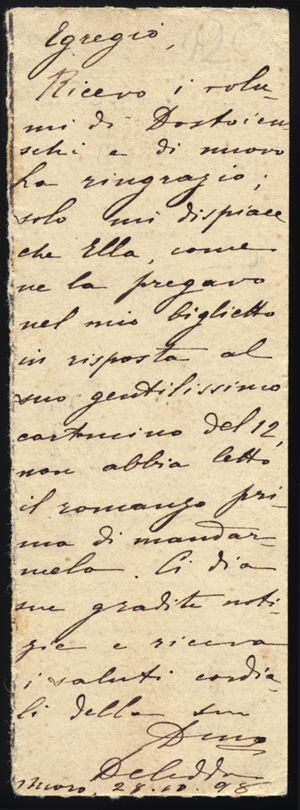 Egregio,
Ricevo i volu-
mi di Dostoien-
schi e di nuovo
La ringrazio;
solo mi dispiace
che Ella, come
ne la pregavo
nel mio biglietto
in risposta al
suo gentilissimo
cartoncino del 12,
non abbia letto
il romanzo pri-
ma di mandar-
melo. Ci dia
sue gradite noti-
zie e riceva
i saluti cordia-
li della sua
Deledda
Nuoro, 28.10.98